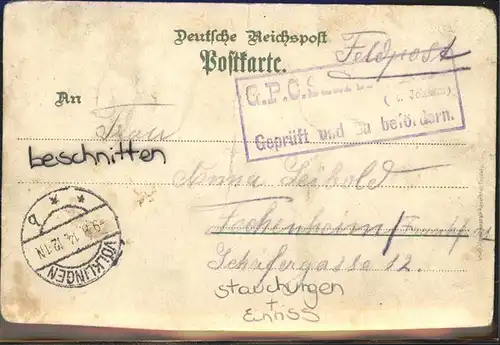 Deutsche Reichspost
Postkarte.
Feldpost
G.P.C.
Geprüft und zu befördern.
An
Frau
beschnitten
Anna Seibold
Eschenheim
Schäfergasse 12.
VÖLKLINGEN
* b *
14. 12-1N
stauchungen
+
Einriss